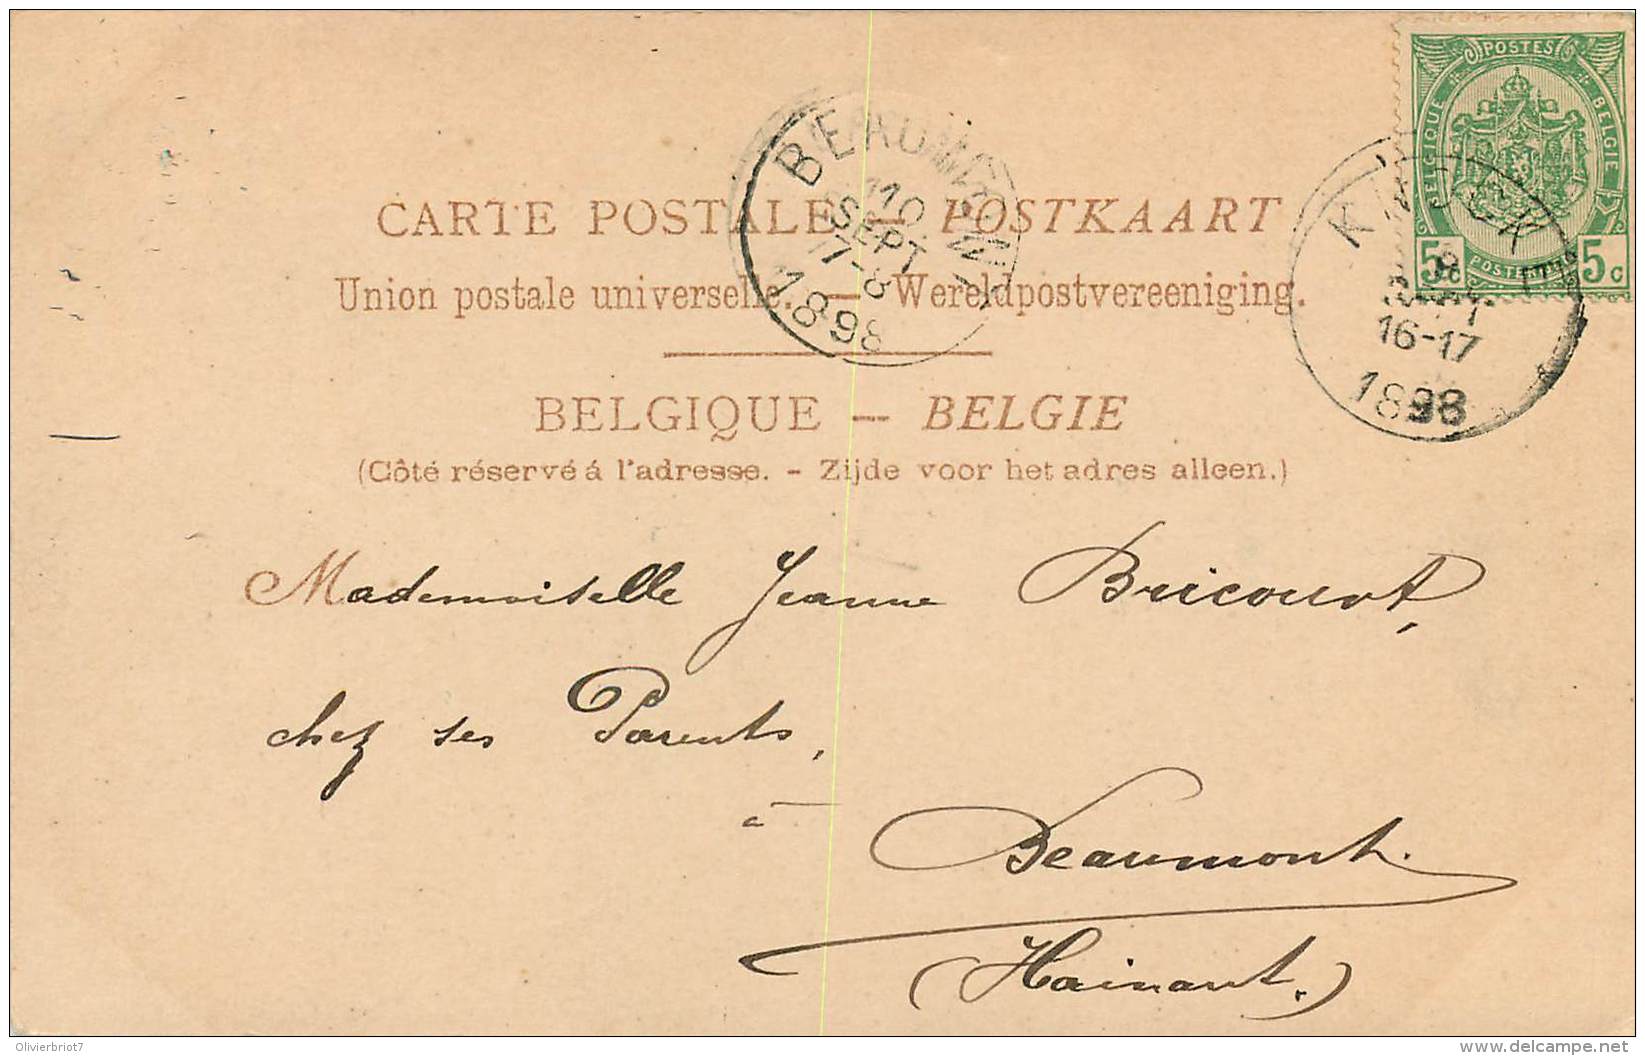 POSTES
BELGIQUE
BELGIE
5c
5c
BEAUMONT
10
SEPT
7-8
1898
KNOCKE
16-17
1898
CARTE POSTALE — POSTKAART
Union postale universelle. — Wereldpostvereeniging.
BELGIQUE — BELGIE
(Côté réservé á l'adresse. - Zijde voor het adres alleen.)
Mademoiselle Jeanne Bricourt,
chez ses Parents,
à Beaumont.
(Hainaut.)
Olivierbriot7
delcampe.net